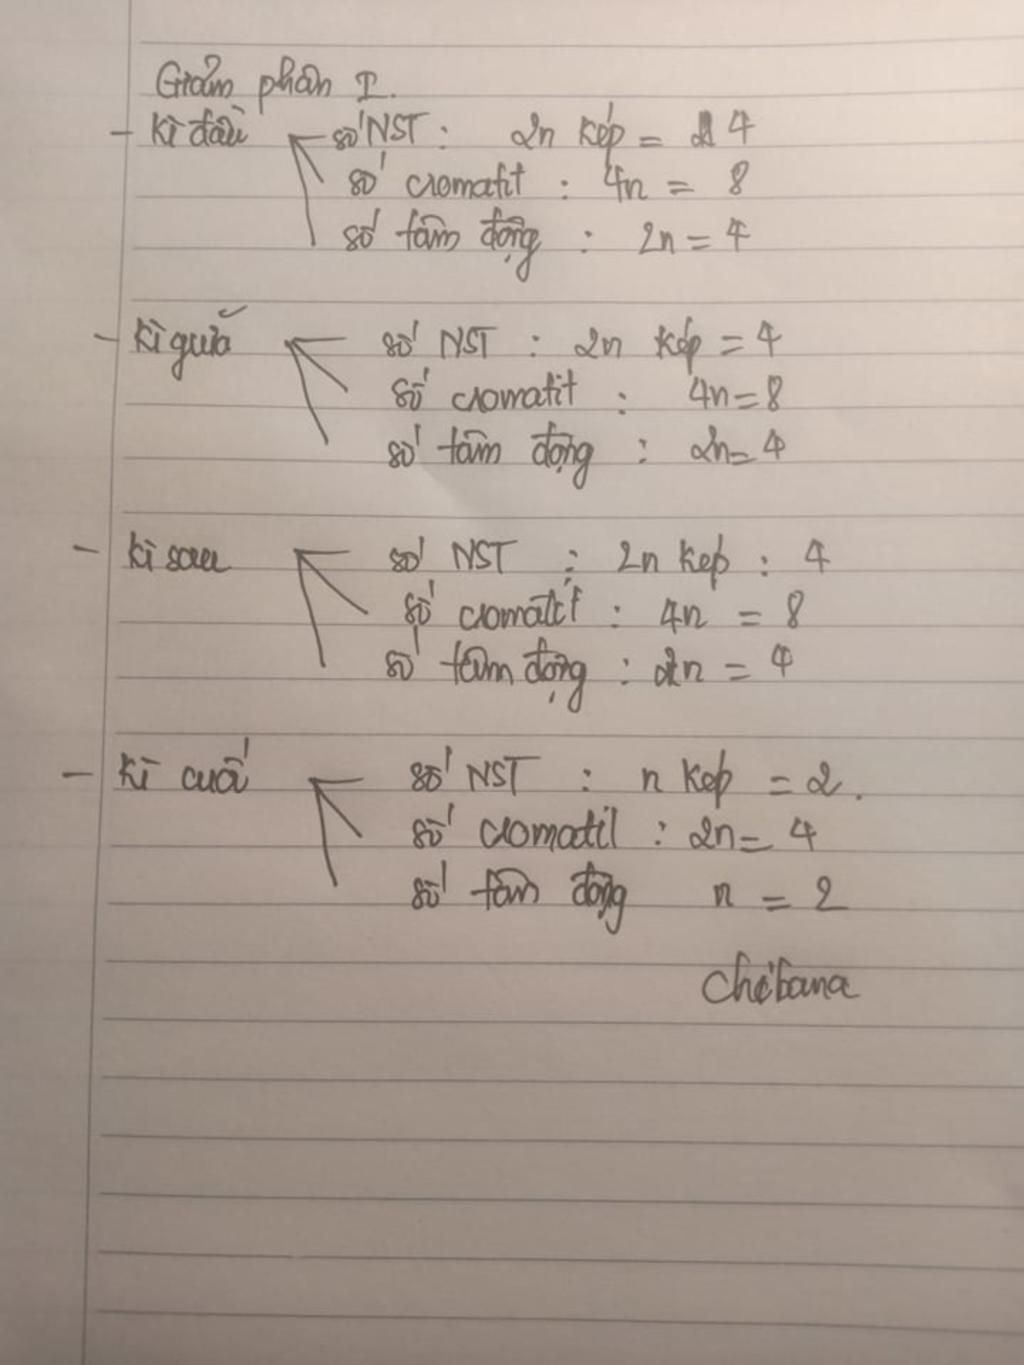 Giảm phân I.
- Kì đầu số NST : 2n kép = 4
số cromatit : 4n = 8
số tâm động : 2n = 4
- Kì giữa số NST : 2n kép = 4
số cromatit : 4n = 8
số tâm động : 2n = 4
- Kì sau số NST : 2n kép : 4
số cromatit : 4n = 8
số tâm động : 2n = 4
- Kì cuối số NST : n kép = 2.
số cromatit : 2n = 4
số tâm động n = 2
Chibana